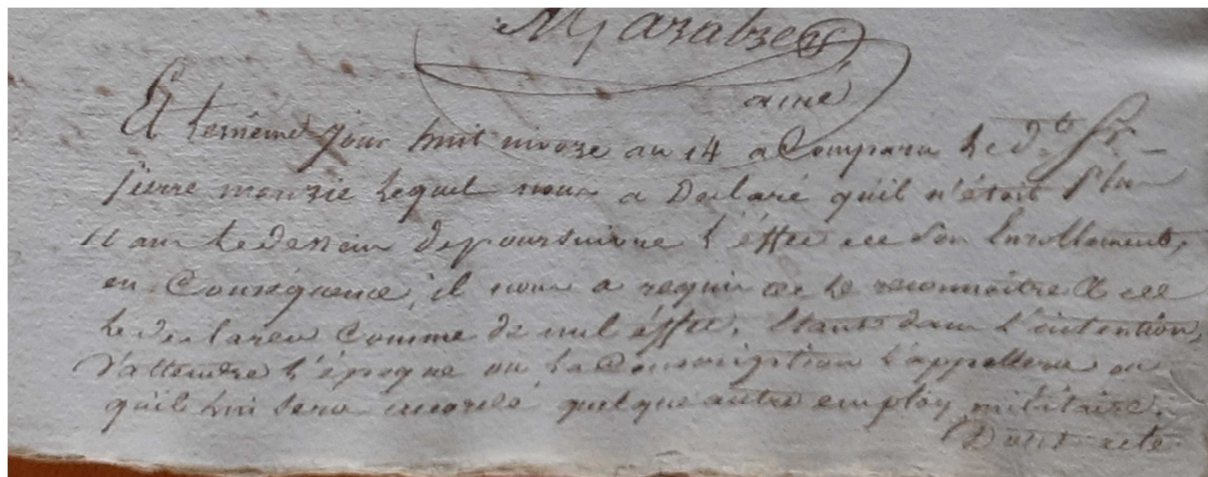 ainé
Et lemême jour huit nivoze an 14 a Comparu Le d.t Sr
pierre lequel nous a Déclaré qu'il n'étoit plus
dans le dessein de poursuivre l'éffet de son Enrollement,
en Conséquence, il nous a requis de le reconnoitre & de
le déclarer Comme de nul éffet, Étant dans l'intention,
d'attendre l'époque ou la Conscription l'appellera ou
qu'il lui sera accordé quelque autre employ militaire.
Dont acte